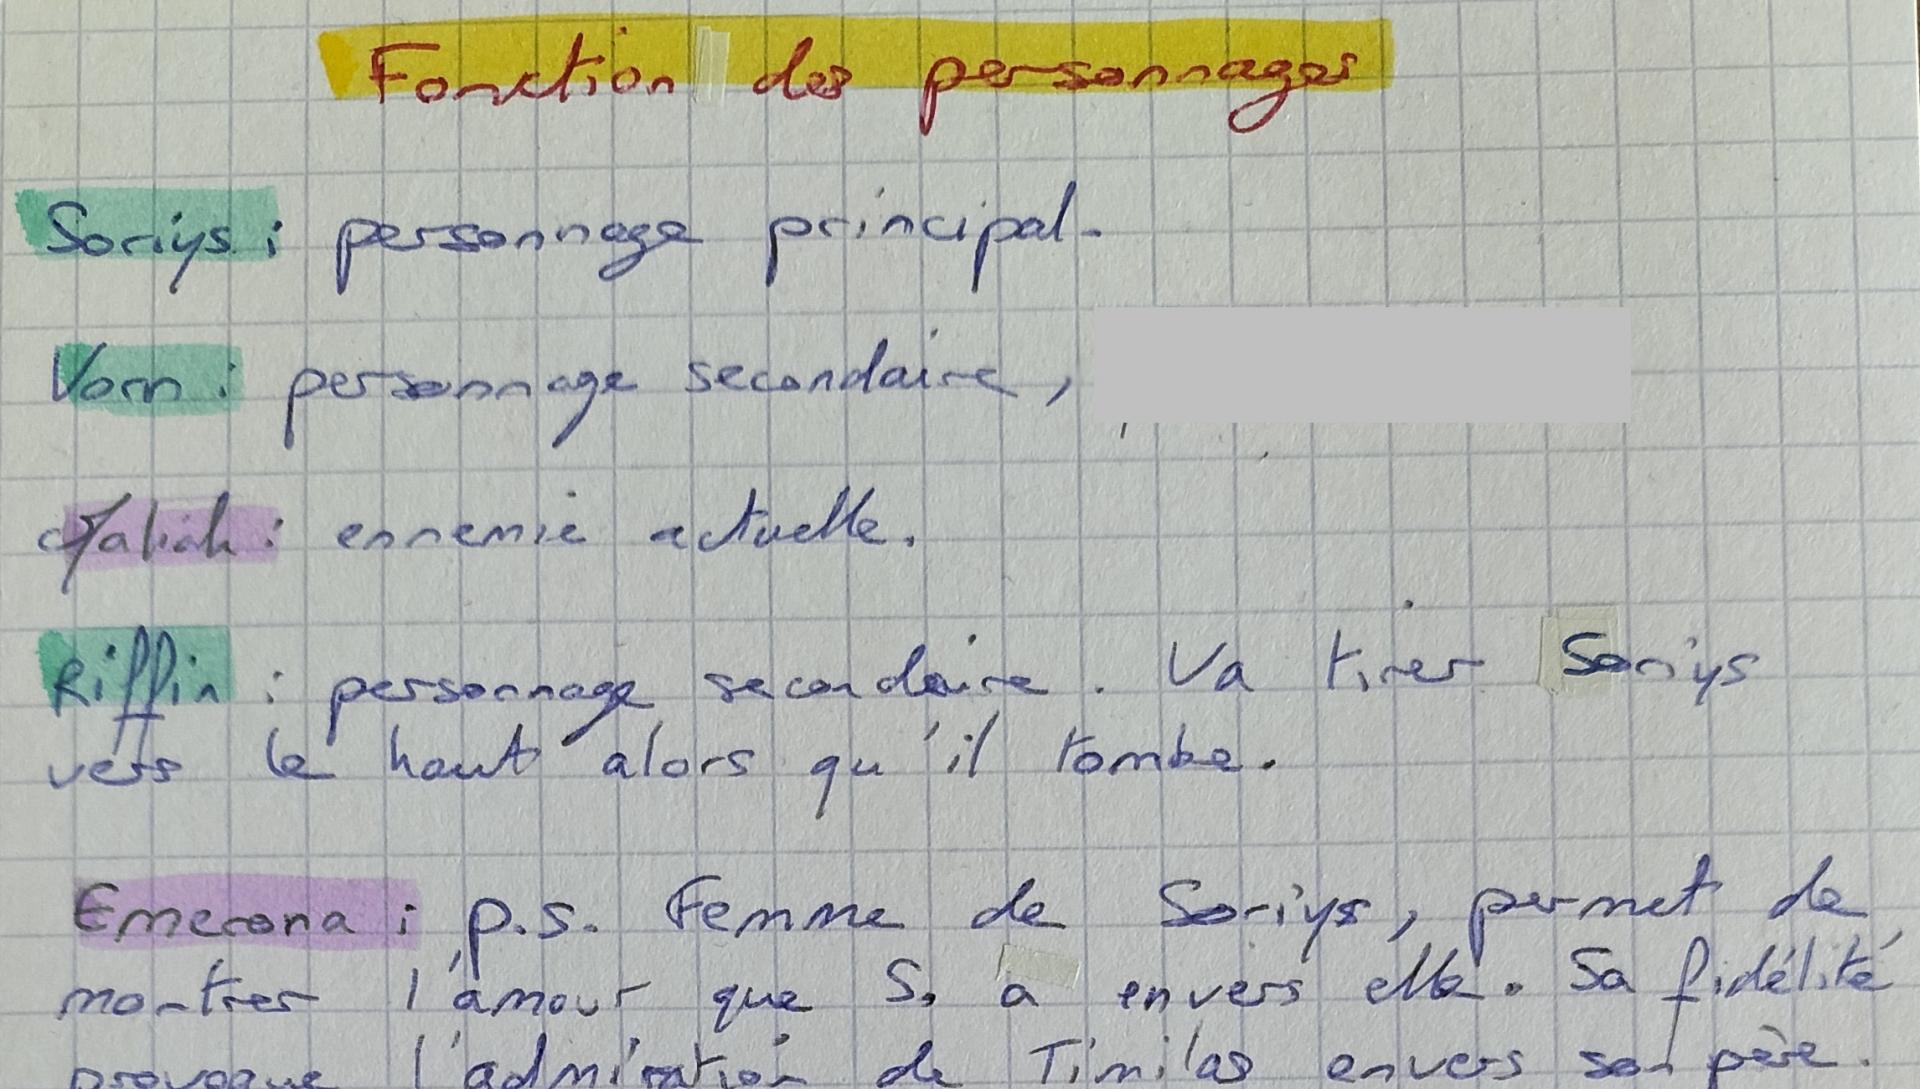 Fonction des personnages
Soriys : personnage principal.
Vorn : personnage secondaire,
: ennemie actuelle.
Riffin : personnage secondaire. Va tirer Soriys
vers le haut alors qu'il tombe.
Emerona : p.s. Femme de Soriys, permet de
montrer l'amour que S. a envers elle. Sa fidélité
provoque l'admiration de Timilas envers son père.